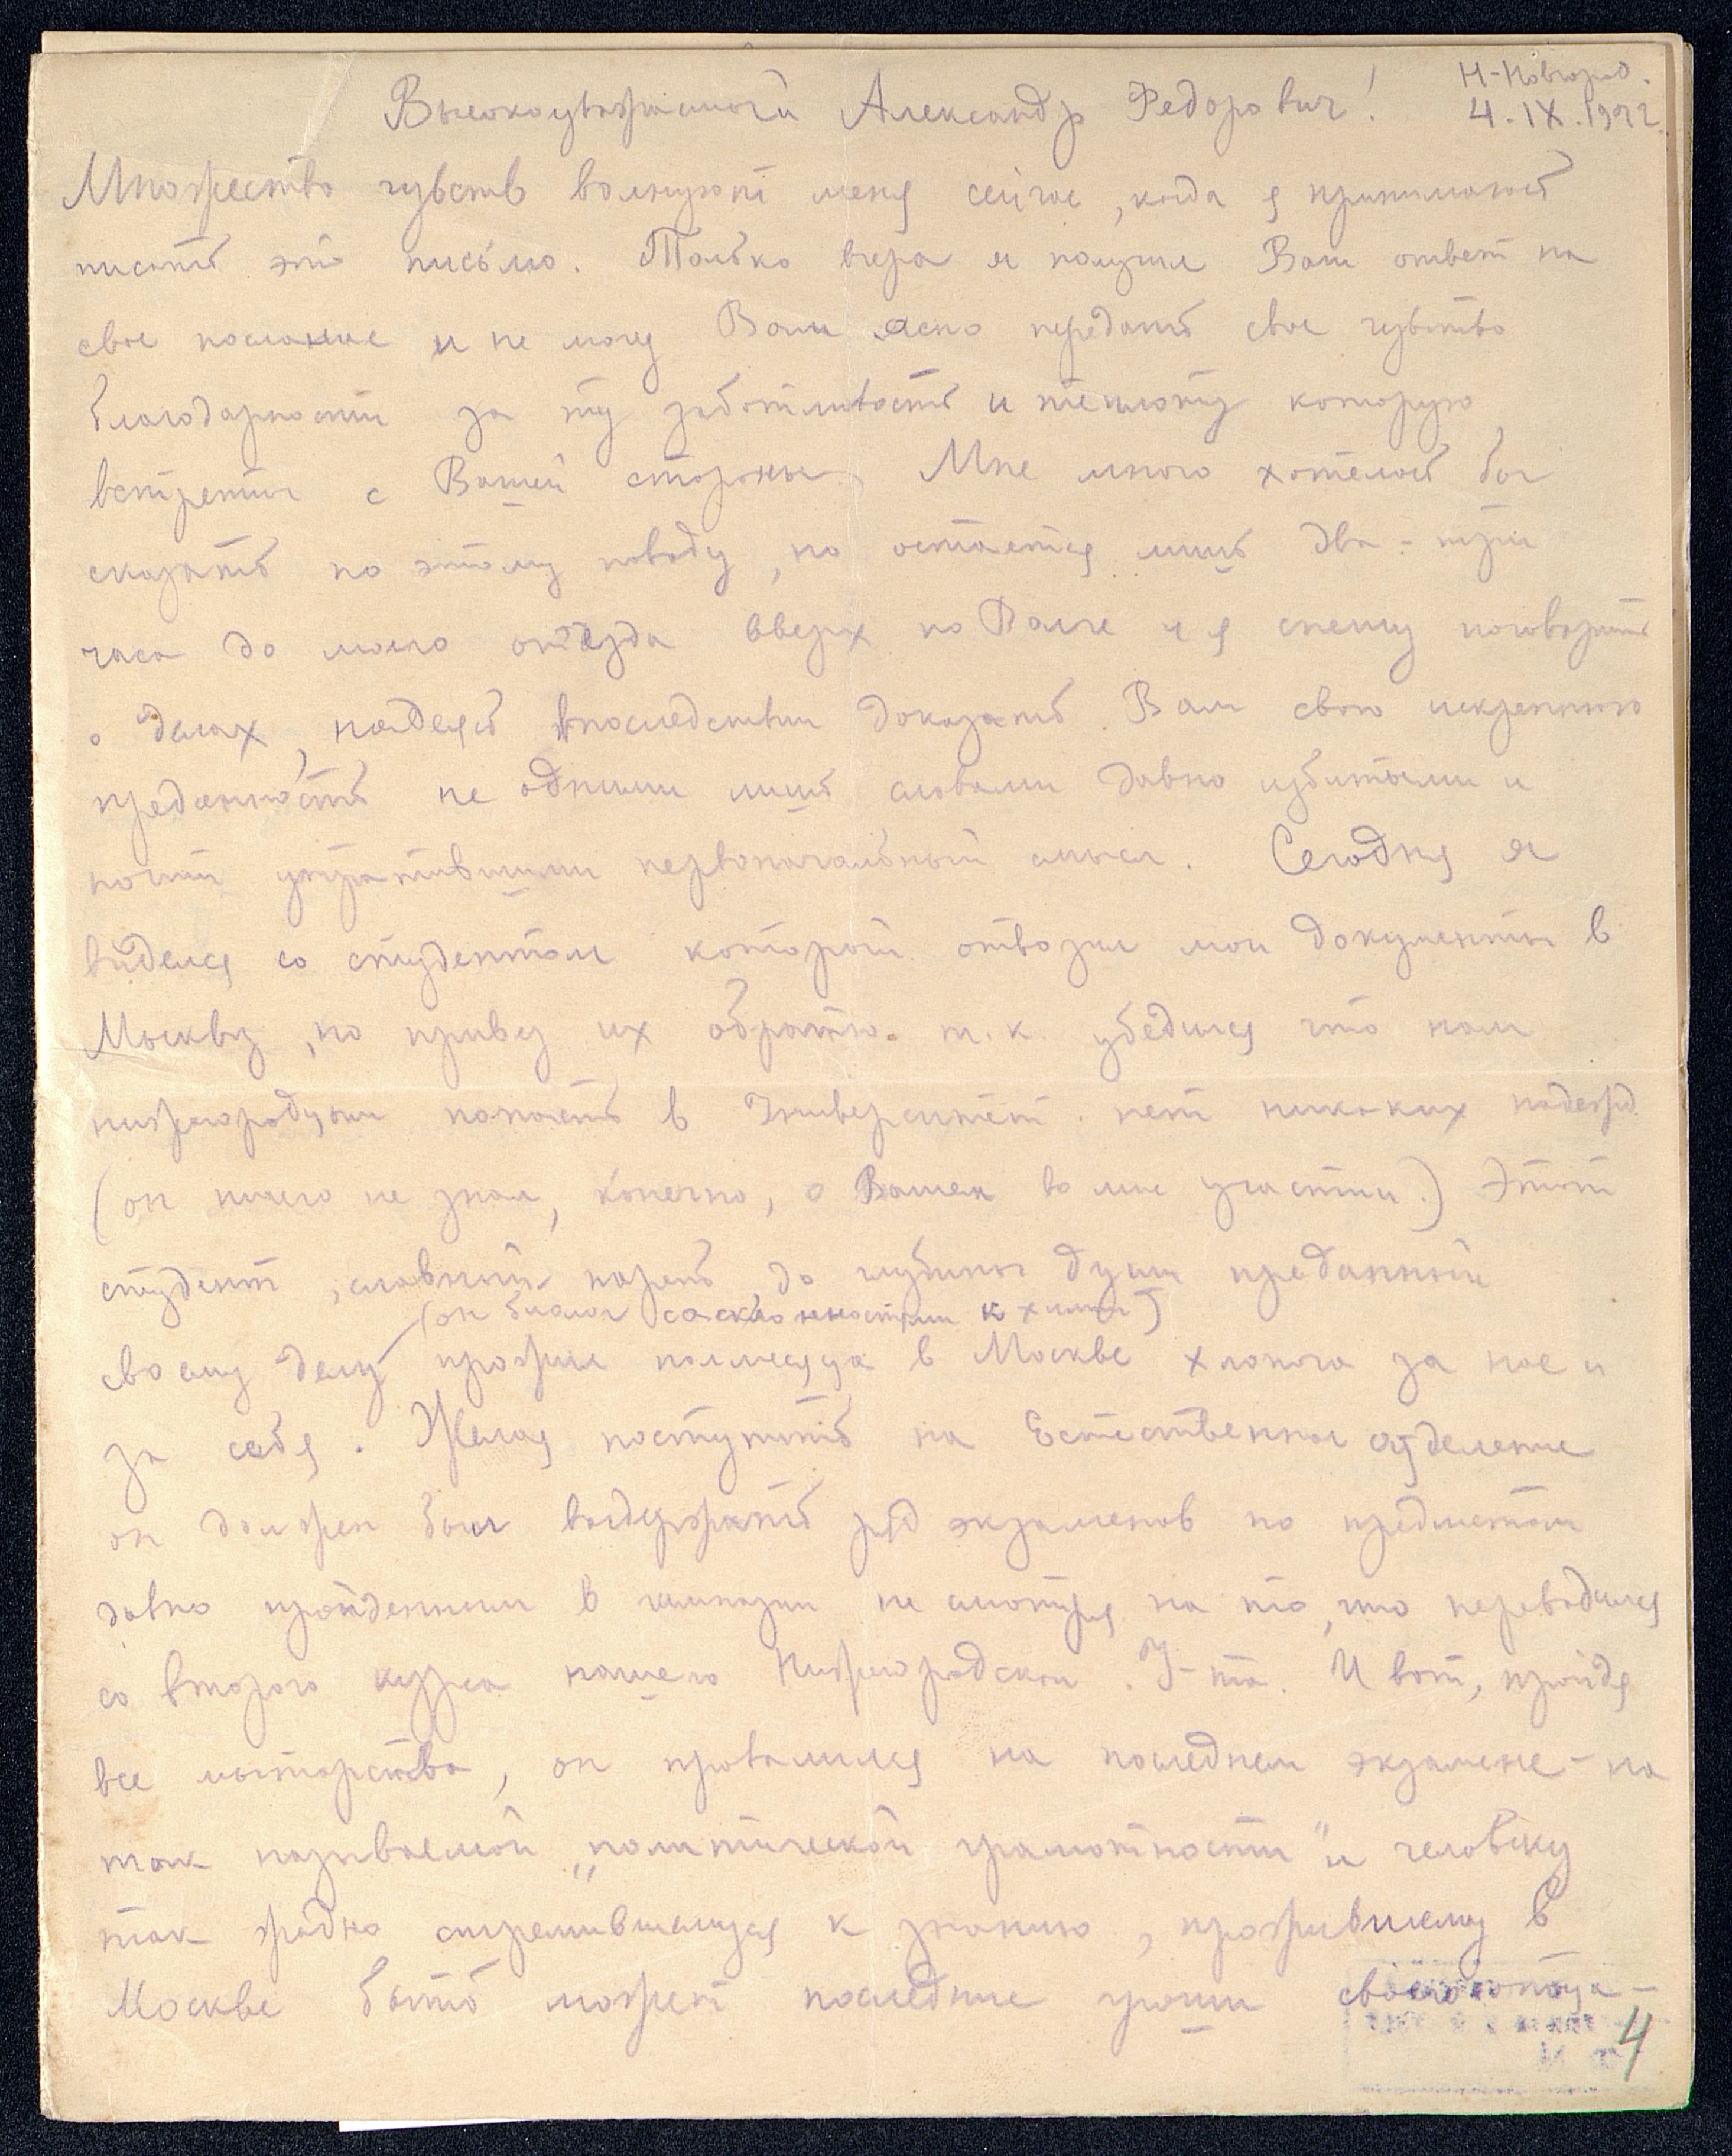 Н-Новгород.
4.IX.1922.
Высокоуважаемый Александр Федорович!
Множество чувств волнуют меня сейчас, когда я принимаюсь
писать это письмо. Только вчера я получил Ваш ответ на
свое послание и не могу Вам ясно передать свое чувство
благодарности за ту заботливость и теплоту которую
встретил с Вашей стороны. Мне много хотелось бы
сказать по этому поводу, но остается лишь два-три
часа до моего отъезда вверх по Волге и я спешу поговорить
о делах, надеясь впоследствии доказать Вам свою искреннюю
преданность не одними лишь словами давно избитыми и
почти утратившими первоначальный смысл. Сегодня я
виделся со студентом который отвозил мои документы в
Москву, но привез их обратно т.к. убедился что нам
нижегородцам попасть в Университет нет никаких надежд.
(он ничего не знал, конечно, о Вашем во мне участии.) Этот
студент, славный парень, до глубины души преданный
(он биолог со склонностями к химии)
своему делу прожил полмесяца в Москве хлопоча за нас и
за себя. Желая поступить на Естественное отделение
он должен был выдержать ряд экзаменов по предметам
давно пройденным в гимназии не смотря на то, что переводился
со второго курса нашего Нижегородского У-та. И вот, пройдя
все мытарства, он провалился на последнем экзамене - на
так называемой "политической грамотности" и человеку
так жадно стремившемуся к знанию, прожившему в
Москве быть может последние гроши своего отца -
4